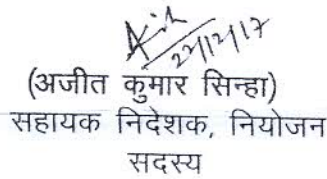 27/12/17
(अजीत कुमार सिन्हा)
सहायक निदेशक, नियोजन
सदस्य